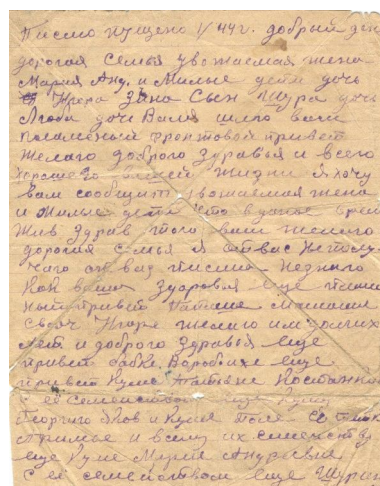 Писмо пущено 1/44г. добрый ден
дорогая Семья уважаемая жена
Мария Анд. и Милые дети доч
Зена Сын Шура доч
Люба доч Валя шлю вам
пламеный фронтовой привет
Желаю доброго Здравья и всего
хорошего вашей жизни Я хочу
вам сообщит уважаемая жена
и Милые дети что в даное врем
Жив Здрав того вам желаю
дорогая семья я от вас не полу
чаю от вас писма незнаю
как ваша Здоровья еще пламе
ный привет Мамаше
желаю им долгих
лет и доброго Здравья еще
привет бабке Воробихе еще
привет Куме
с её семейством еще куму
и Куме Поле
и всему их семейству
еще Куме Марие Андревне
с её семейством еще Шуре